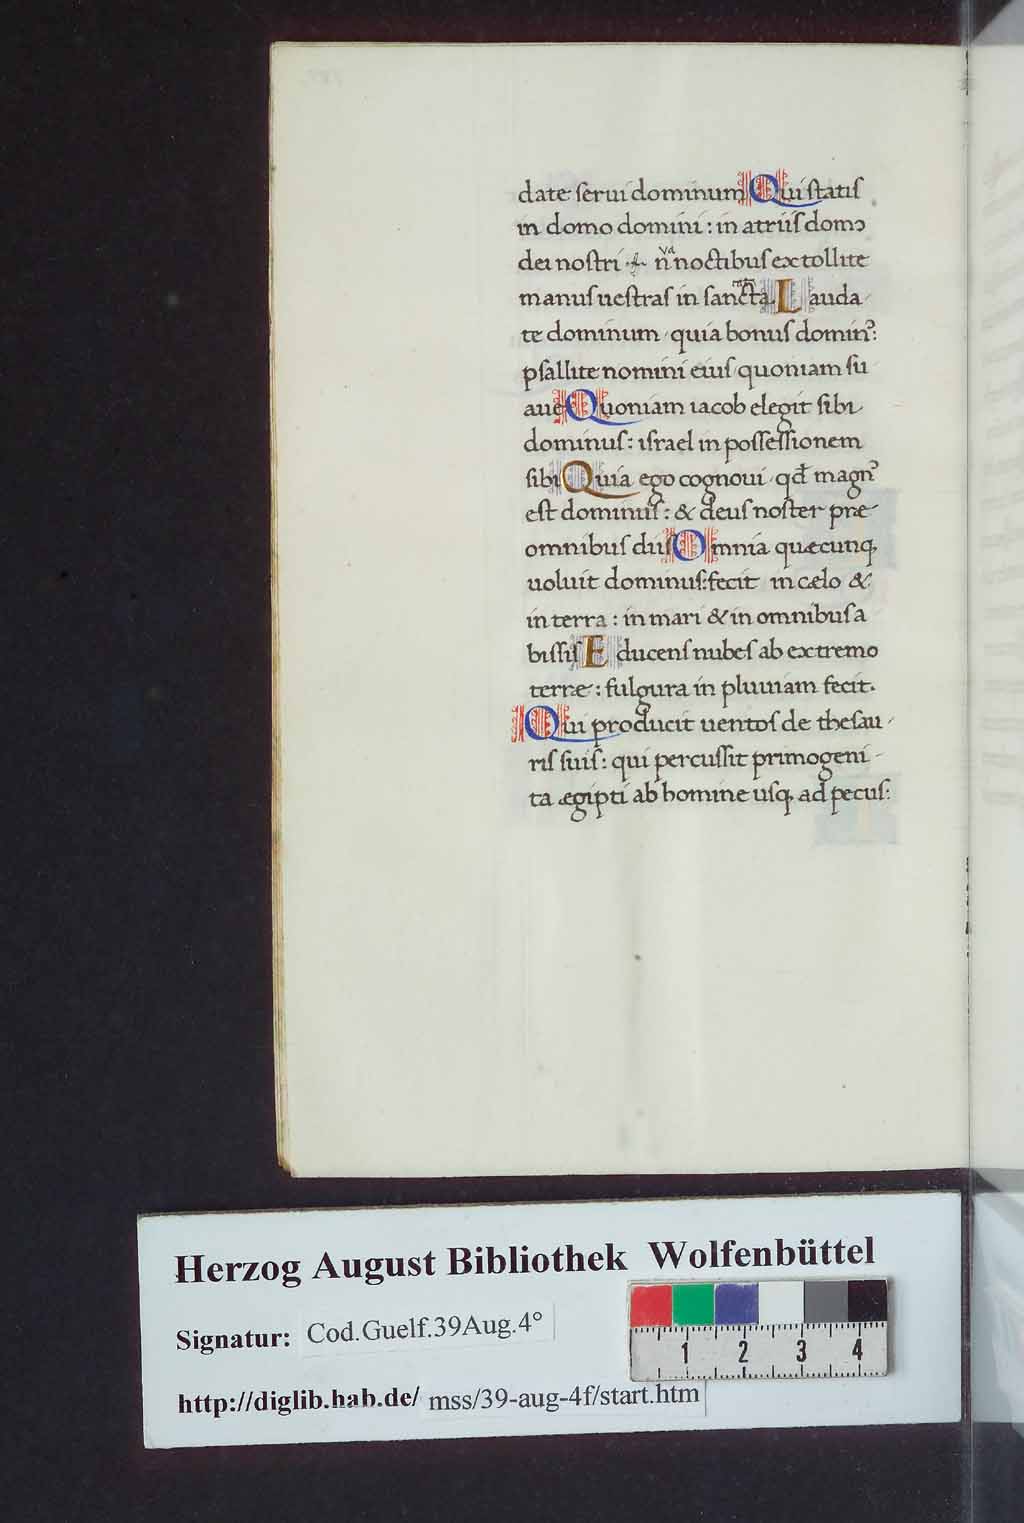 date serui dominum Qui statis
in domo domini : in atriis domo
dei nostri
noctibus extollite
manus uestras in sancta Lauda
te dominum · quia bonus domin⁹:
psallite nomini eius · quoniam su
aue Quoniam iacob elegit sibi
dominus : israel in possessionem
sibi Quia ego cognoui · qđ magn⁹
est dominus : & deus noster præ
omnibus diis Omnia quæcunq;
uoluit dominus: fecit in cælo &
in terra : in mari & in omnibus a
bissis Educens nubes ab extremo
terræ : fulgura in pluuiam fecit.
Qui producit uentos de thesau
ris suis : qui percussit primogeni
ta ægipti ab homine usq; ad pecus:
Herzog August Bibliothek Wolfenbüttel
Signatur: Cod.Guelf.39Aug.4°
http://diglib.hab.de/ mss/39-aug-4f/start.htm
1 2 3 4